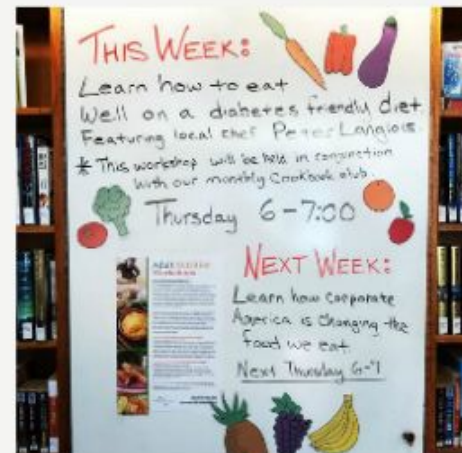 THIS WEEK:
Learn how to eat
Well on a diabetes friendly diet.
Featuring local chef Peter Langlois.
* This workshop will be held in conjunction
with our monthly Cookbook club.
Thursday 6-7:00
Adult Nutrition
Workshops
NEXT WEEK:
Learn how corporate
America is changing the
food we eat.
Next Thursday 6-7